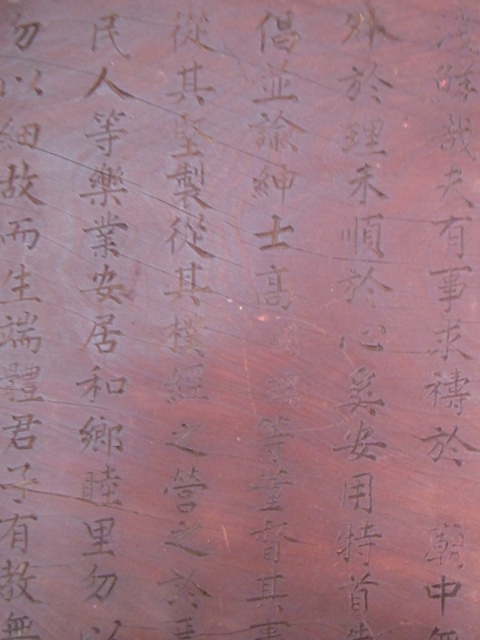 哉夫有事求禱於 廟中無
外於理未順於心奚安用特首先
倡並諭紳士高等董督其事
從其堅製從其樸經之營之於
民人等樂業安居和鄉睦里勿以
勿以細故而生端體君子有教無